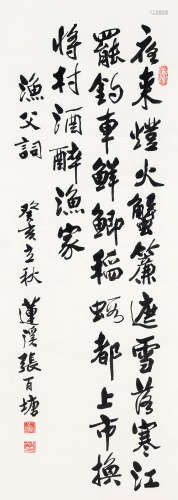 夜来燈火蟹簾遮雪落寒江
罷釣車鮮鯽稻蝦都上市換
將村酒醉漁家
漁父詞
癸亥立秋 蓮溪張百塘